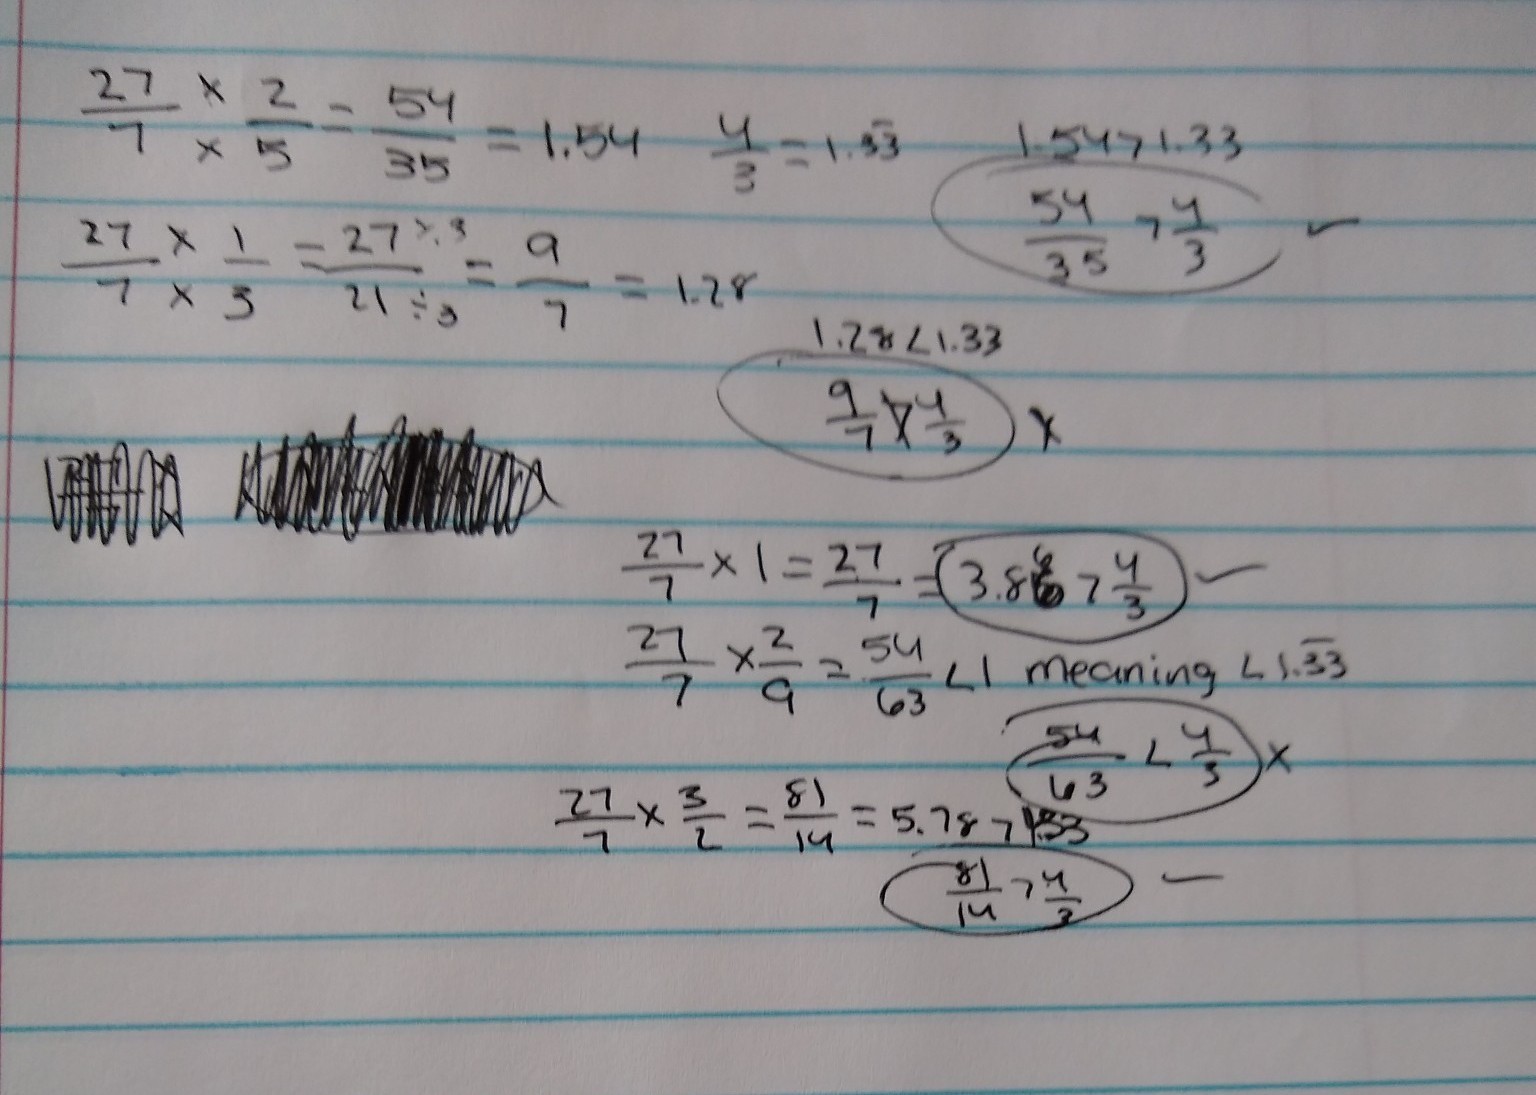 27/7 × 2/5 = 54/35 = 1.54 4/3 = 1.3̅3̅ 1.54 > 1.33
54/35 > 4/3 ✓
27/7 × 1/3 = 27÷3/21÷3 = 9/7 = 1.28
1.28 < 1.33
9/7 > 4/3 X
27/7 × 1 = 27/7 = 3.86 > 4/3 ✓
27/7 × 2/9 = 54/63 < 1 meaning < 1.3̅3̅
54/63 < 4/3 X
27/7 × 3/2 = 81/14 = 5.78 > 1.33
81/14 > 4/3 ✓